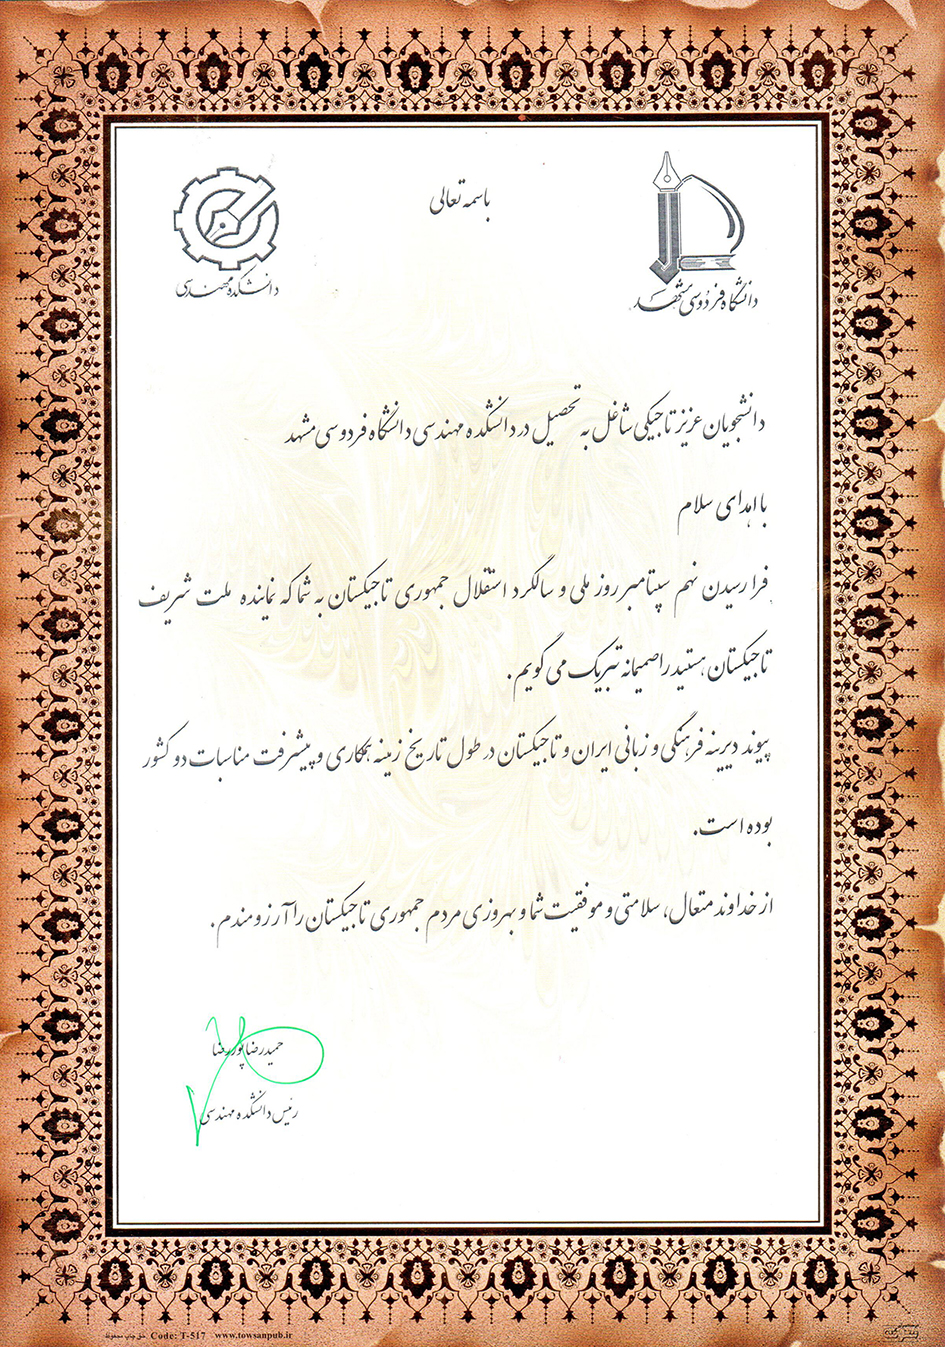 باسمه تعالی
دانشگاه فردوسی مشهد
دانشکده مهندسی
دانشجویان عزیز تاجیکی شاغل به تحصیل در دانشکده مهندسی دانشگاه فردوسی مشهد
با اهدای سلام
فرا رسیدن نهم سپتامبر روز ملی و سالگرد استقلال جمهوری تاجیکستان به شما که نماینده ملت شریف
تاجیکستان هستید را صمیمانه تبریک می گویم.
پیوند دیرینه فرهنگی و زبانی ایران و تاجیکستان در طول تاریخ زمینه همکاری و پیشرفت مناسبات دو کشور
بوده است.
از خداوند متعال، سلامتی و موفقیت شما و بهروزی مردم جمهوری تاجیکستان را آرزومندم.
حمیدرضا پوررضا
رئیس دانشکده مهندسی
حق چاپ محفوظ Code: T-517 www.towsanpub.ir